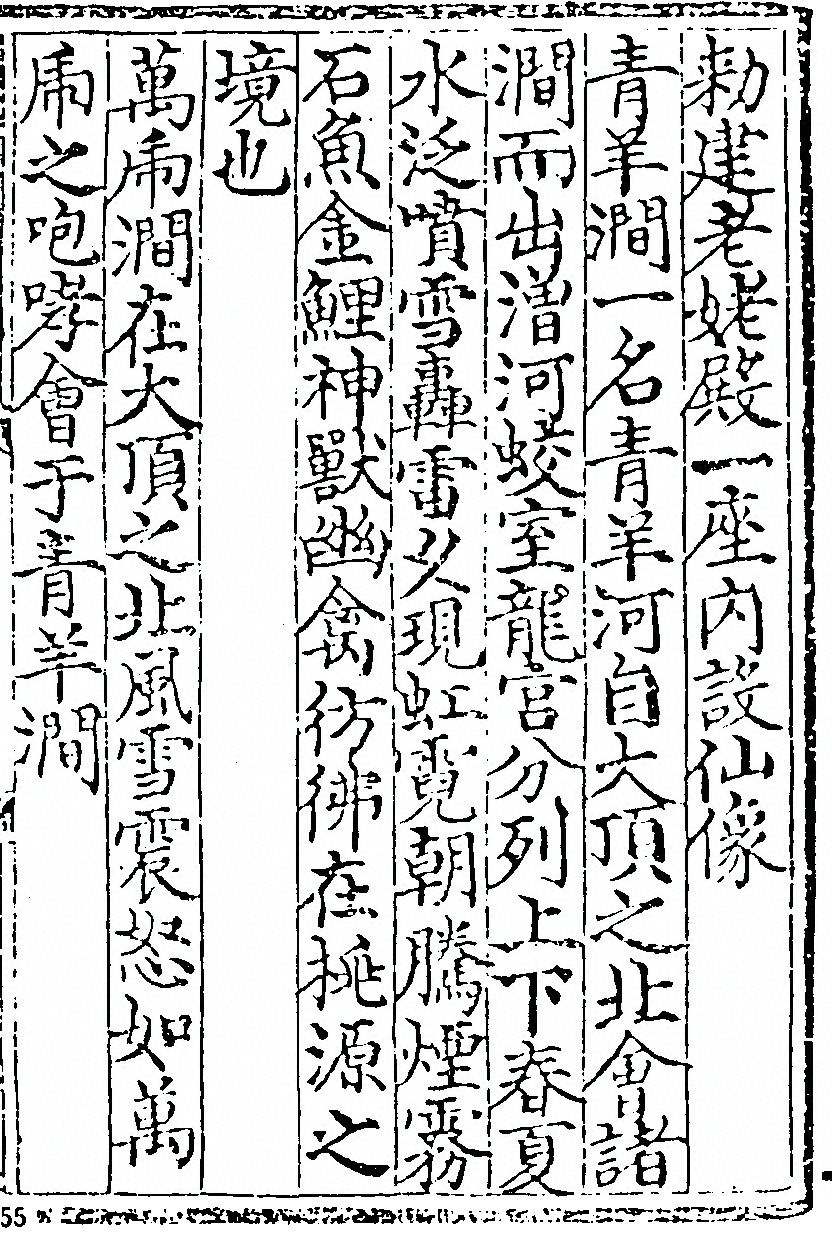 勅建老姥殿一座內設仙像
青羊澗一名青羊河自大頂之北會諸
澗而出漕河蛟室龍宮分列上下春夏
水泛噴雪轟雷夕現虹霓朝騰煙霧
石魚金鯉神獸幽禽彷彿在桃源之
境也
萬虎澗在大頂之北風雪震怒如萬
虎之咆哮會于青羊澗
55